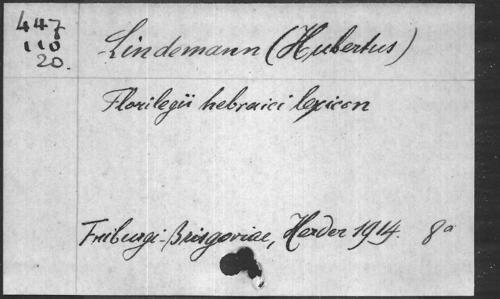 447
110
20.
Lindemann (Hubertus)
Florilegii hebraici lexicon
Friburgi-Brisgoviae, Herder 1914. 8º